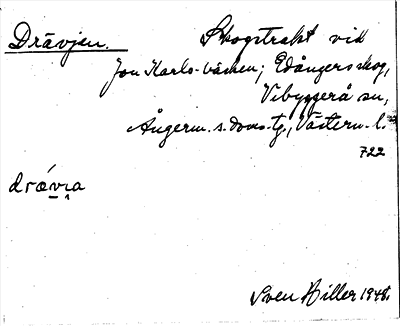 Drävjen. Skogstrakt vid
Jon Karls-väsken; Edångers skog,
Vibyggerå sn,
Ångerm. s. doms-tg., Västern. l.
722
drävıa
Sven Hiller 1948.